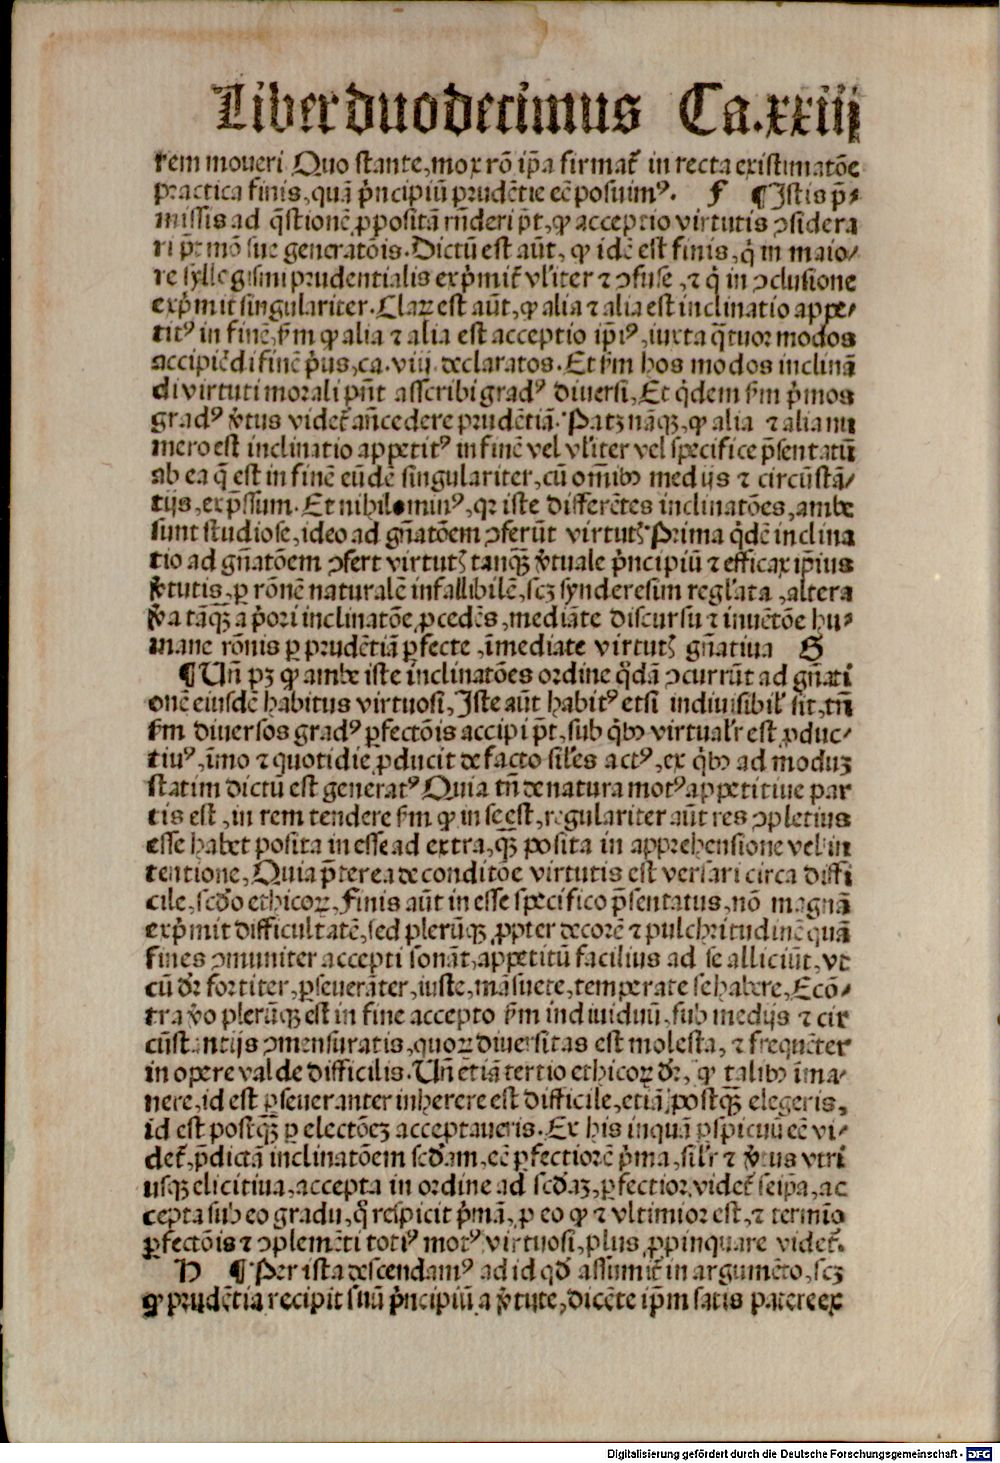 Liber duodecimus Ca.xxiij
rem moueri Quo stante,mox rõ ip̃a firmat᷑ in recta existimatõe
practica finis,quã p̾ncipiũ prudẽtie eẽ posuimꝰ. F ¶Istis p̃-
missis ad q̃stionẽ ꝓpositã rñderi põt,ꝙ acceptio virtutis ↄsidera
ri põt mõ sue generatõis.Dictũ est aũt, ꝙ idẽ est finis,q̇ in maio-
re syllogismi prudentialis exp̾mit᷑ vl̾iter ⁊ ↄfuse ,⁊ q̇ in ↄclusione
exp̾mit singulariter.Claꝝ est aũt,ꝙ alia ⁊ alia est inclinatio appe-
titꝰ in finẽ,ẜm ꝙ alia ⁊ alia est acceptio ip̃iꝰ,iuxta q̃tuor modos
accipiẽdi finẽ p̾us,ca.viij.declaratos.Et ẜm hos modos inclinã
di virtuti morali pñt asscribi gradꝰ diuersi,Et q̇dem ẜm p̾mos
gradꝰ v̾tus videt᷑ añcedere prudẽtiã.Patꝫ nãqꝫ,ꝙ alia ⁊ alia nu
mero est inclinatio appetitꝰ in finẽ vel vl̾iter vel specifice p̃sentatũ
ab ea q̃ est in finẽ eũdẽ singulariter,cũ om̃ibꝰ medijs ⁊ circũstã-
tijs,exp̃ssum.Et nihilominꝰ,qꝛ iste differẽtes inclinatões,ambe
sunt studiose,ideo ad gñatõem ↄferũt virtutꝭ Prima q̇dẽ inclina
tio ad gñatõem ↄfert virtutꝭ tanqꝫ̃ v̾tuale p̾ncipiũ ⁊ efficax ip̃ius
v̾tutis,ꝑ rõnẽ naturalẽ infallibilẽ,scꝫ synderesim regl̾ata ,altera
v̾a tãqꝫ̃ a p̾ori inclinatõe ꝓcedẽs,mediãte discursu ⁊ inuẽtõe hu-
mane rõnis ꝑ prudẽtiã ꝑfecte ,ĩmediate virtutꝭ gñatiua G
¶Uñ pꝫ ꝙ ambe iste inclinatões ordine q̃dã ↄcurrũt ad gñati
onẽ eiusdẽ habitus virtuosi,Iste aũt habitꝰ etsi indiuisibil̾ sit,tñ
ẜm diuersos gradꝰ ꝑfectõis accipi põt,sub q̇bꝰ virtual̾r est ꝓduc-
tiuꝰ,ĩmo ⁊ quotidie ꝓducit de facto sil̾es actꝰ,ex q̇bꝰ ad moduꝫ
statim dictũ est generatꝰ Quia tñ de natura motꝰ appetitiue par
tis est ,in rem tendere ẜm ꝙ in se est,regulariter aũt res ↄpletius
esse habet posita in esse ad extra,qꝫ̃ posita in apprehensione vel in
tentione,Quia p̃terea de conditõe virtutis est versari circa diffi
cile,scd̾o ethicoꝝ,Finis aũt in esse specifico p̃sentatus,nõ magnã
exp̾mit difficultatẽ,sed plerũqꝫ ꝓpter decorẽ ⁊ pulchritudinẽ quã
fines ↄmuniter accepti sonãt,appetitũ facilius ad se alliciũt,vt
cũ d̾r fortiter,ꝑseuerãter,iuste,mãsuete,temperate se habere,Ecõ-
tra v̾o plerũqꝫ est in fine accepto ẜm indiuiduũ,sub medijs ⁊ cir
cũstantijs ↄmensuratis,quoꝝ diuersitas est molesta, ⁊ frequẽter
in opere valde difficilis.Uñ etiã tertio ethicoꝝ d̾r, ꝙ talibꝰ ĩma-
nere,id est ꝑseueranter inherere est difficile,etiã postqꝫ̃ elegeris,
id est postqꝫ̃ ꝑ electõeꝫ acceptaueris.Ex his inquã ꝑspicuũ eẽ vi-
det᷑,p̃dictã inclinatõem scd̾am,eẽ ꝑfectiorẽ p̾ma,sil̾r ⁊ v̾tus vtri
usqꝫ elicitiua,accepta in ordine ad scd̾aꝫ,ꝑfectior videt᷑ seip̃a,ac
cepta sub eo gradu,q̊ respicit p̾mã,ꝑ eo ꝙ ⁊ vltimior est,⁊ termĩo
ꝑfectõis ⁊ ↄplemẽti totiꝰ motꝰ virtuosi,plus ꝓpinquare videt᷑.
H ¶Per ista descendamꝰ ad id qd̾ assumit᷑ in argumẽto,scꝫ
ꝙ prudẽtia recipit suũ p̾ncipiũ a v̾tute,dicẽte ip̃m satis patere ex
Digitalisierung gefördert durch die Deutsche Forschungsgemeinschaft - DFG